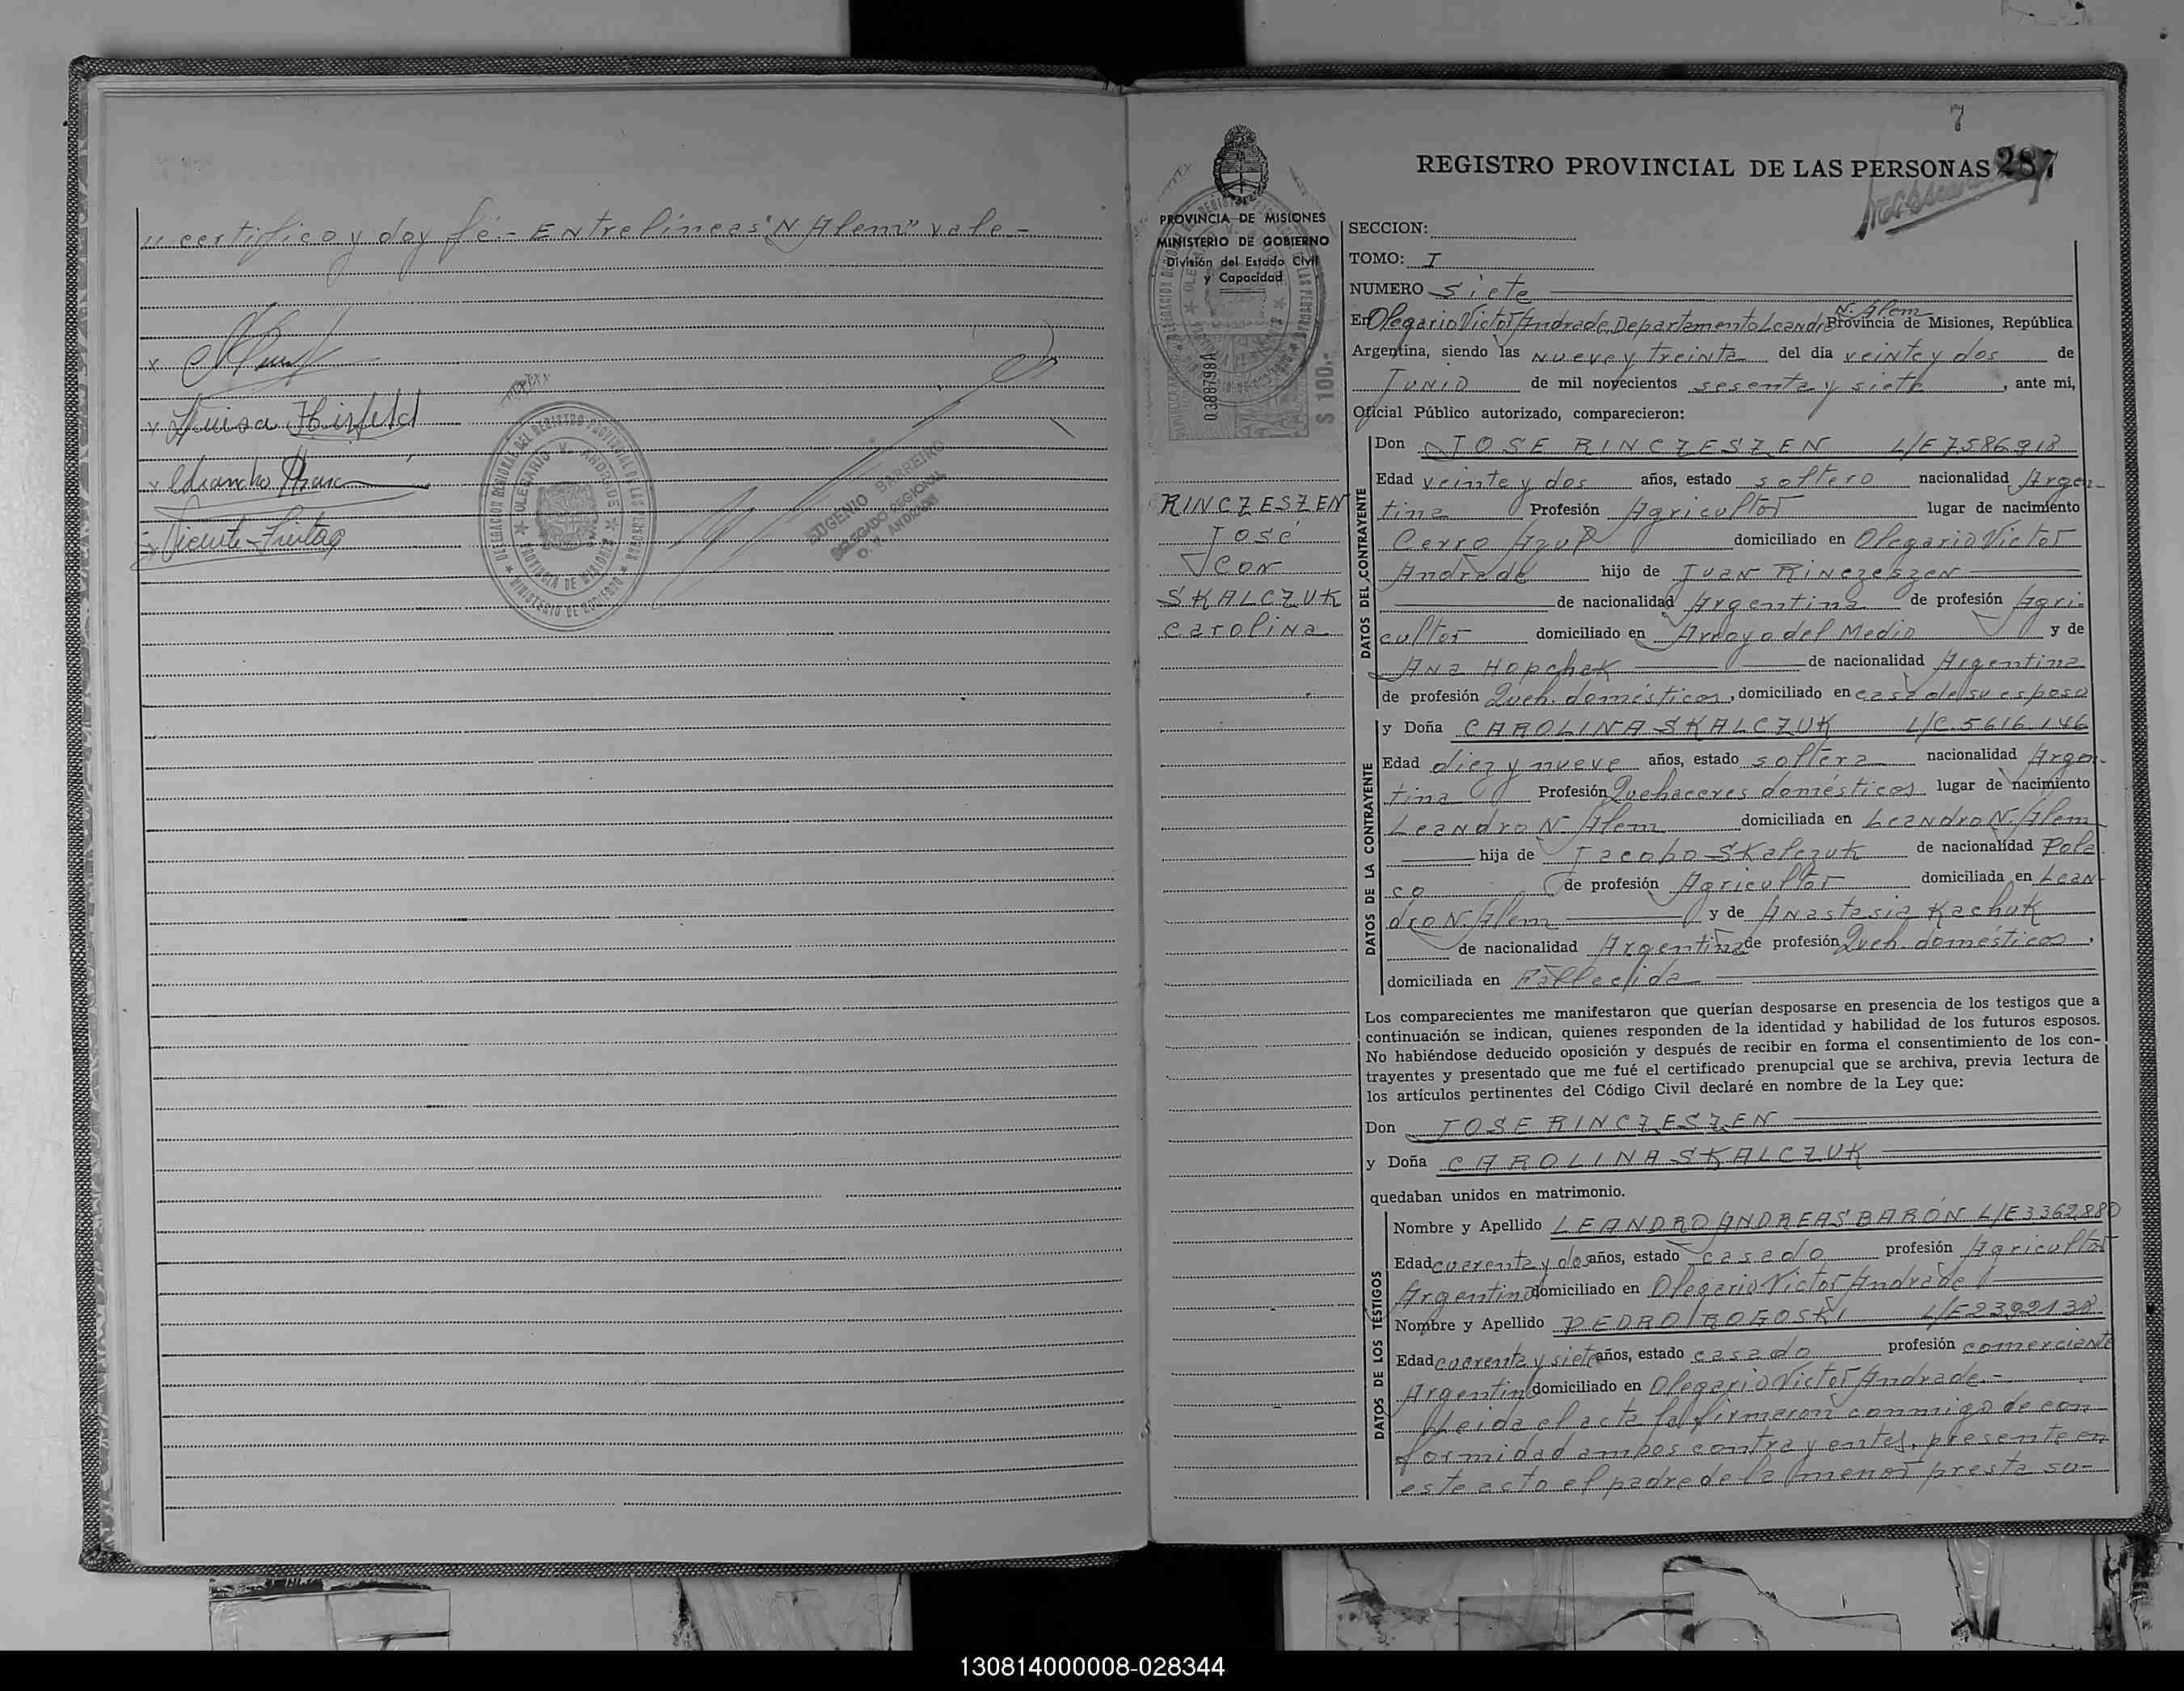 u certifico y doy fé.- Entrelíneas "N Alem" vale.-
Luisa Hisfeld
Vicente Freitag
DELEGACION REGIONAL DEL REGISTRO PROVINCIAL DE LAS PERSONAS
OLEGARIO V. ANDRADE
PROVINCIA DE MISIONES
MINISTERIO DE GOBIERNO
EUGENIO BARREIRO
DELEGADO REGIONAL
O. V. ANDRADE
7
REGISTRO PROVINCIAL DE LAS PERSONAS 287
PROVINCIA DE MISIONES
MINISTERIO DE GOBIERNO
División del Estado Civil
y Capacidad
0388798A
$ 100.-
RINCZESZEN
José
con
SKALCZUK
Carolina
SECCION:
TOMO: I
NUMERO Siete
N. Alem
En Olegario Victor Andrade, Departamento Leandro Provincia de Misiones, República
Argentina, siendo las nueve y treinta del día veinte y dos de
Junio de mil novecientos sesenta y siete, ante mi,
Oficial Público autorizado, comparecieron:
DATOS DEL CONTRAYENTE
Don JOSE RINCZESZEN L/E 7586918
Edad veinte y dos años, estado soltero nacionalidad Argen-
tina Profesión Agricultor lugar de nacimiento
Cerro Azul domiciliado en Olegario Victor
Andrade hijo de Juan Rinczeszen
de nacionalidad Argentina de profesión Agri-
cultor domiciliado en Arroyo del Medio y de
Ana Hopchak de nacionalidad Argentina
de profesión Queh. domésticos, domiciliado en casa de su esposo
DATOS DE LA CONTRAYENTE
y Doña CAROLINA SKALCZUK L/C. 5616.146
Edad diez y nueve años, estado soltera nacionalidad Argen-
tina Profesión Quehaceres domésticos lugar de nacimiento
Leandro N. Alem domiciliada en Leandro N. Alem
hija de Jacobo Skalczuk de nacionalidad Pola-
co de profesión Agricultor domiciliada en Lean-
dro N. Alem y de Anastasia Kachuk
de nacionalidad Argentina de profesión Queh. domésticos,
domiciliada en Fallecida
Los comparecientes me manifestaron que querían desposarse en presencia de los testigos que a
continuación se indican, quienes responden de la identidad y habilidad de los futuros esposos.
No habiéndose deducido oposición y después de recibir en forma el consentimiento de los con-
trayentes y presentado que me fué el certificado prenupcial que se archiva, previa lectura de
los artículos pertinentes del Código Civil declaré en nombre de la Ley que:
Don JOSE RINCZESZEN
y Doña CAROLINA SKALCZUK
quedaban unidos en matrimonio.
DATOS DE LOS TESTIGOS
Nombre y Apellido LEANDRO ANDREAS BARÓN L/E 3362880
Edad cuarenta y dos años, estado casado profesión Agricultor
Argentino domiciliado en Olegario Victor Andrade
Nombre y Apellido PEDRO ROGOSKI L/E 2392138
Edad cuarenta y siete años, estado casado profesión comerciante
Argentino domiciliado en Olegario Victor Andrade.-
Leida el acta la firmaron conmigo de con
formidad ambos contrayentes, presente en
este acto el padre de la menor presta su-
130814000008-028344